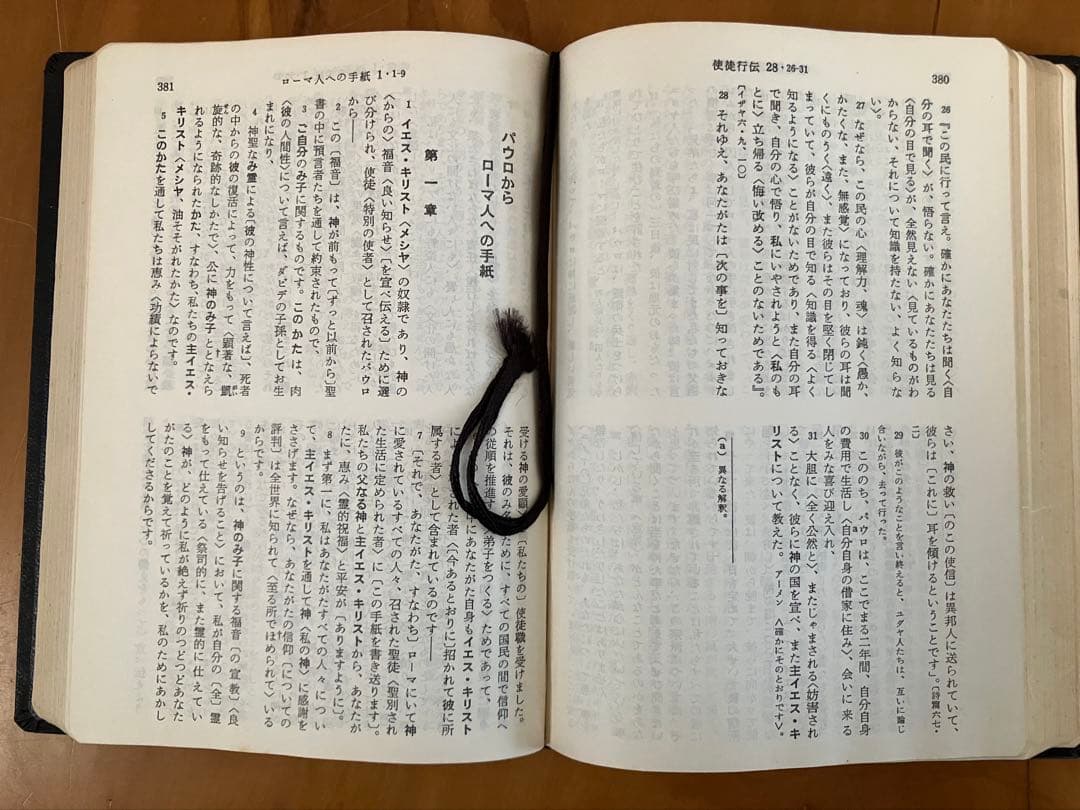 使徒行伝 28・26-31
380
26 『この民に行って言え。確かにあなたたちは聞く〈自
分の耳で聞く〉が、悟らない。確かにあなたたちは見る
〈自分の目で見る〉が、全然見えない〈見ているものがわ
からない、それについて知識を持たない、よく知らな
い〉。
27 なぜなら、この民の心〈理解力、魂〉は鈍く〈愚か、
かたくな、また、無感覚〉になっており、彼らの耳は聞
くにものうく〈遠く〉、また彼らはその目を堅く閉じてし
まっていて、彼らが自分の目で知る〈知識を得る〈よく
知るようになる〉ことがないためであり、また自分の耳
で聞き、自分の心で悟り、私にいやされようと〈私のも
とに〉立ち帰る〈悔い改める〉ことのないためである』。
〔イザヤ六・九、一〇〕
28 それゆえ、あなたがたは〔次の事を〕知っておきな
さい、神の救い〔のこの使信〕は異邦人に送られていて、
彼らは〔これに〕耳を傾けるということです」。〔詩篇六七・
二〕
29 彼がこのようなことを言い終えると、ユダヤ人たちは、互いに論じ
合いながら、去って行った。
30 こののち、パウロは、ここでまる二年間、自分自身
の費用で生活し〈自分自身の借家に住み〉、会いに来る
a
人をみな喜び迎え入れ、
31 大胆に〈全く公然と〉、またじゃまされる〈妨害され
る〉ことなく、彼らに神の国を宣べ、また主イエス・キ
リストについて教えた。アーメン〈確かにそのとおりです〉。
(a) 異なる解釈。
ローマ人への手紙 1・1-9
381
パウロから
ローマ人への手紙
第一章
1 イエス・キリスト〈メシヤ〉の奴隷であり、神の
〈からの〉福音〈良い知らせ〉〔を宣べ伝える〕ために選
び分けられ、使徒〈特別の使者〉として召されたパウロ
から――
2 この〔福音〕は、神が前もって〔ずっと以前から〕聖
書の中に預言者たちを通して約束されたもので、
3 ご自分のみ子に関するものです。このかたは、肉
〈彼の人間性〉について言えば、ダビデの子孫としてお生
まれになり、
4 神聖なみ霊による〔彼の神性について言えば〕、死者
の中からの彼の復活によって、力をもって〈顕著な、凱
旋的な、奇跡的なしかたで〉、公に神のみ子ととなえら
れるようになられたかた、すなわち、私たちの主イエス・
キリスト〈メシヤ、油そそがれたかた〉なのです。
5 このかたを通して私たちは恵み〈功績によらないで
受ける神の愛顧〉 〔私たちの〕使徒職を受けました。
それは、彼のみ ために、すべての国民の間で信仰へ
の従順を推進す 弟子をつくる〉ためであって、
にあなたがた自身もイエス・キリスト
に された者〈〔今あるとおりに〕招かれて彼に所
属する者〉として含まれているのです――
7 〔それで、あなたがた、すなわち〕ローマにいて神
に愛されているすべての人々、召された聖徒〈聖別され
た生活に定められた者〉に〔この手紙を書き送ります〕。
私たちの父なる神と主イエス・キリストから、あなたが
たに、恵み〈霊的祝福〉と平安が〔ありますように〕。
8 まず第一に、私はあなたがたすべての人々につい
て、主イエス・キリストを通して神〈私の神〉に感謝を
ささげます。なぜなら、あなたがたの信仰〔についての
評判〕は全世界に知られて〈至る所でほめられて〉いる
からです。
9 というのは、神のみ子に関する福音〔の宣教〕〈良
い知らせを告げること〉において、私が自分の〔全〕霊
をもって仕えている〈祭司的に、また霊的に仕えてい
る〉神が、どのように私が絶えず祈りのつどつどあなた
がたのことを覚えて祈っているかを、私のためにあかし
してくださるからです。